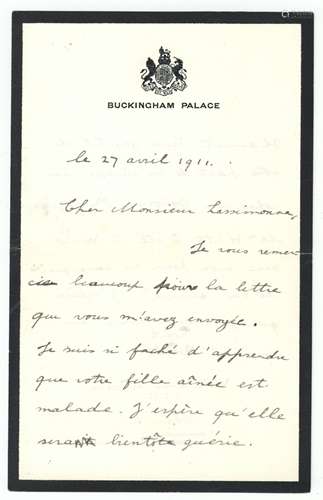 BUCKINGHAM PALACE
le 27 avril 1911.
Cher Monsieur Lassimonne,
Je vous remer-
cie beaucoup pour la lettre
que vous m'avez envoyée.
Je suis si faché d'apprendre
que votre fille aînée est
malade. J'espère qu'elle
sera bientôt guérie.